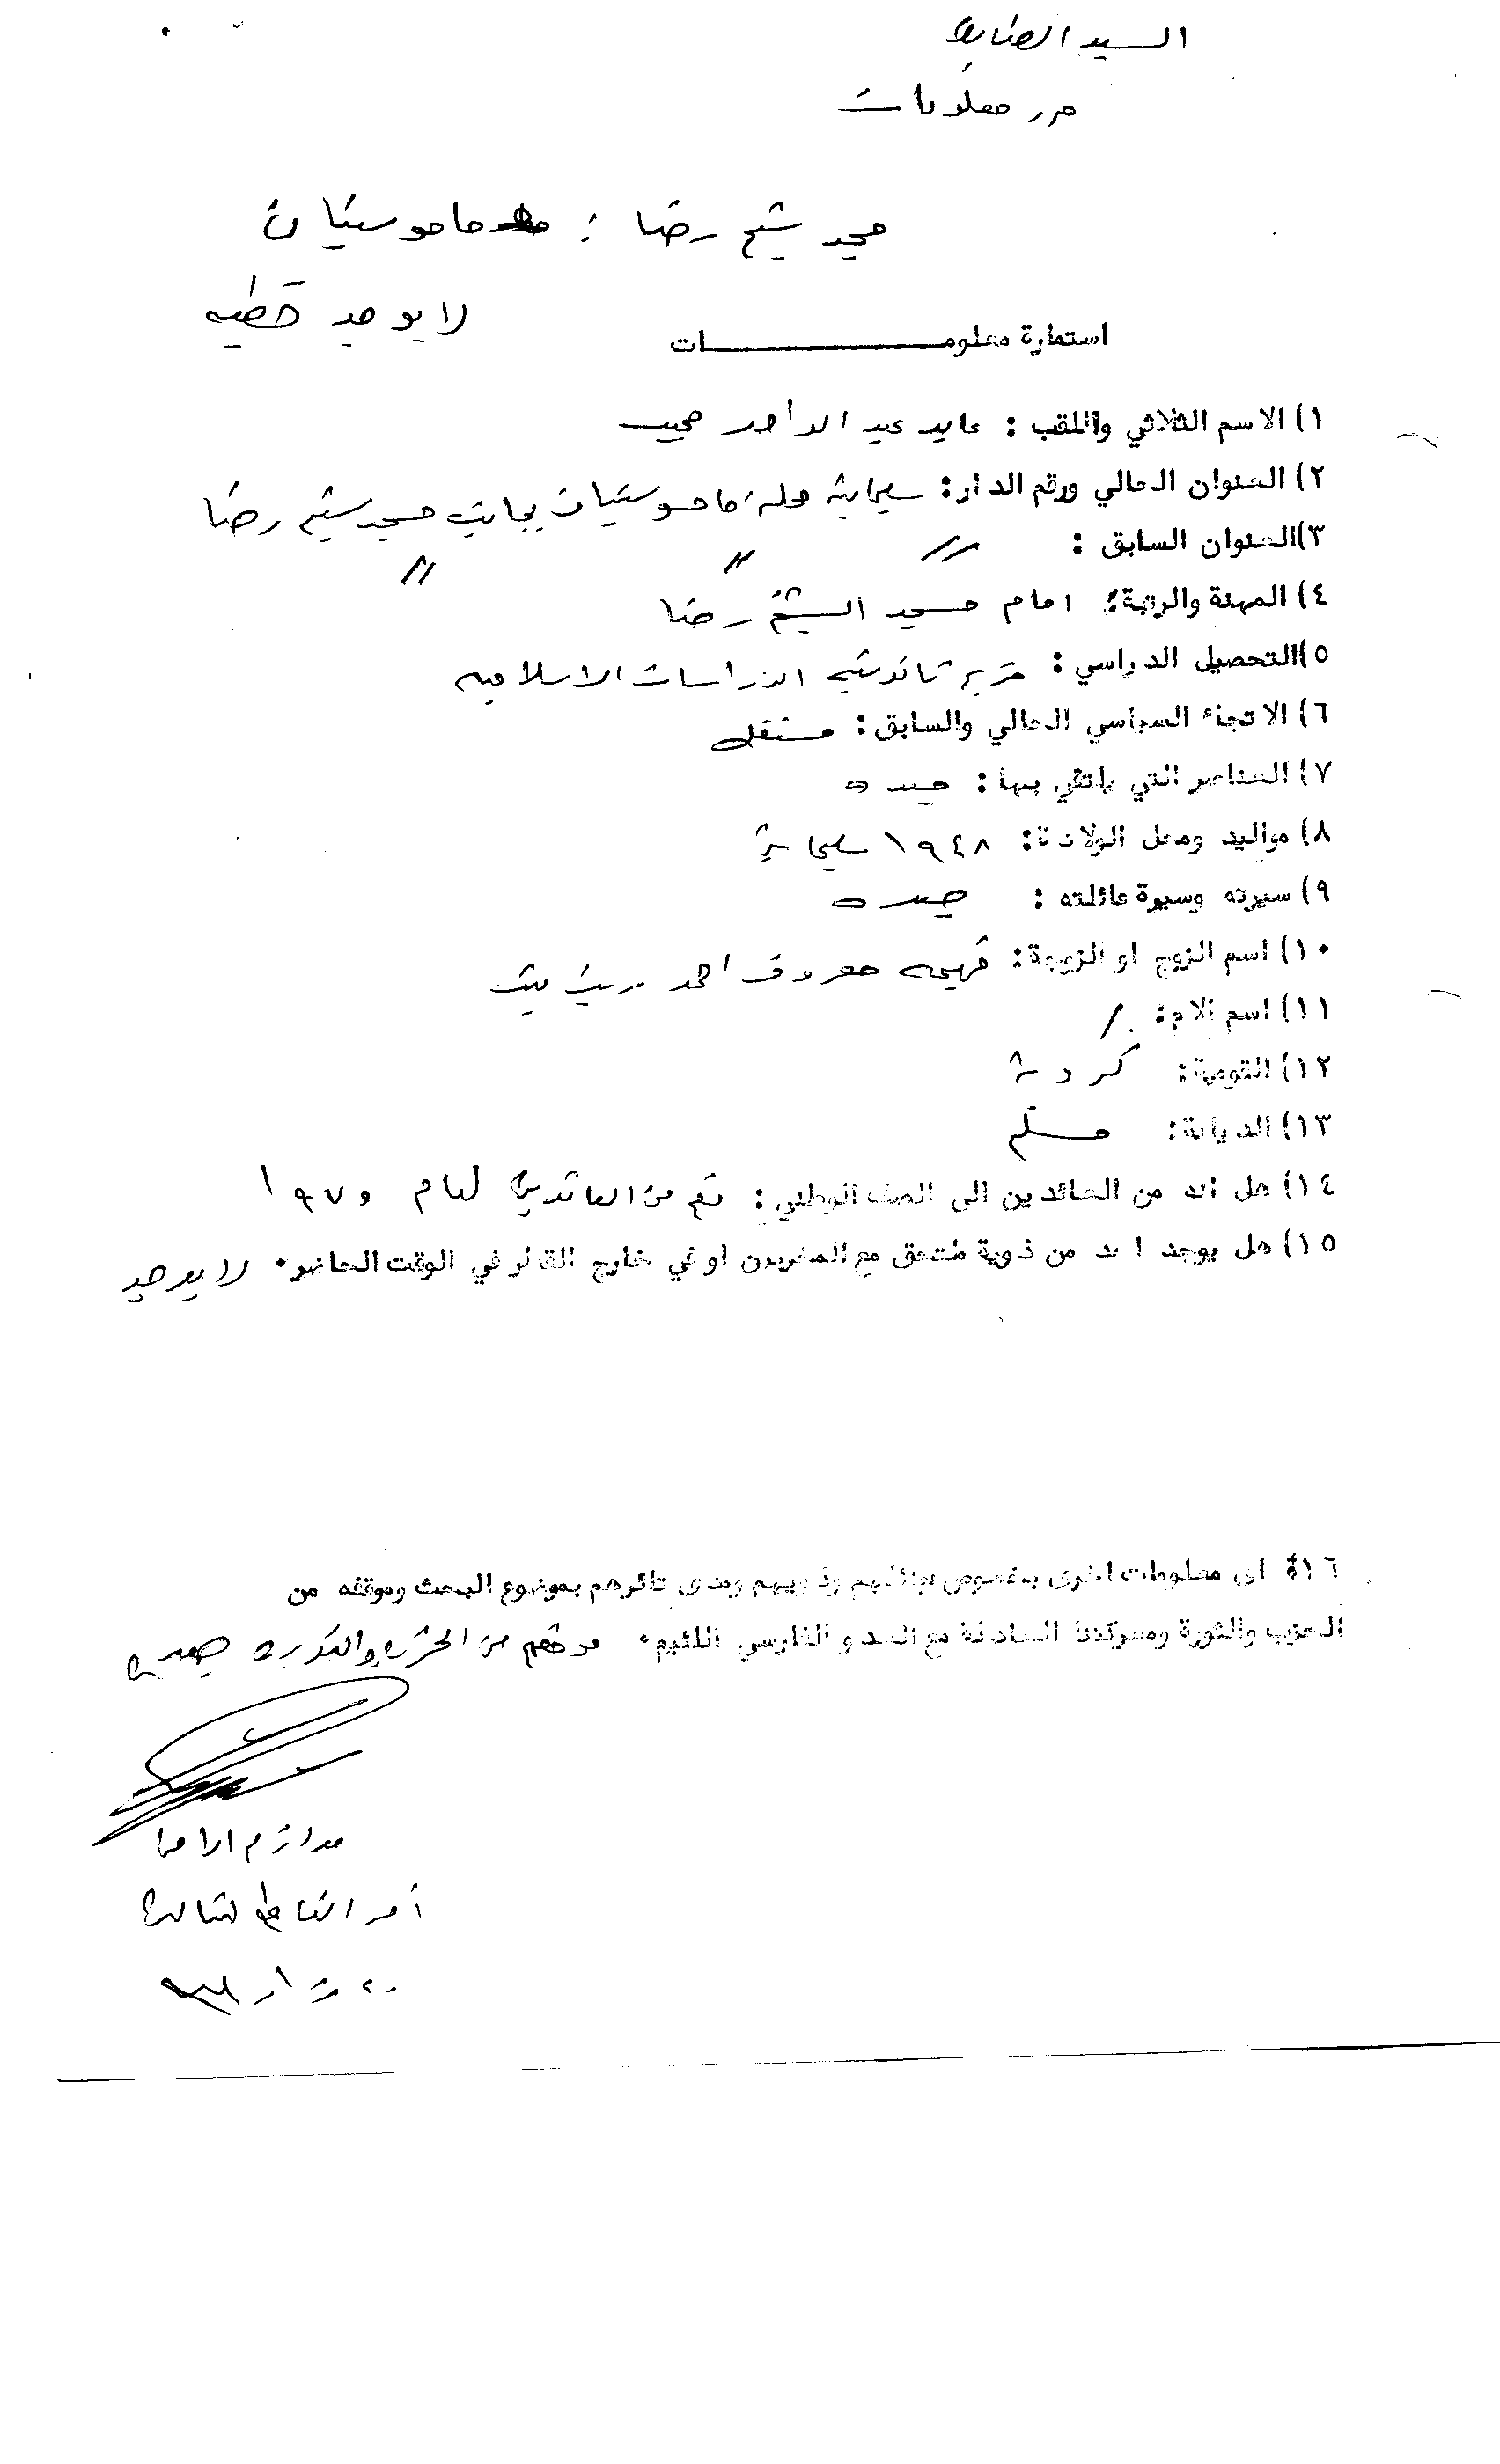 السيد الضابط
مسجد شيخ رضا : ماموستيان
لا يوجد خطيب
استمارة معلومـــات
١) الاسم الثلاثي واللقب : عابد عبد الواحد مجيد
٢) العنوان الحالي ورقم الدار : سليمانية محلة ماموستيان بجانب مسجد شيخ رضا
٣) العنوان السابق : // // //
٤) المهنة والرتبة : امام مسجد الشيخ رضا
٥) التحصيل الدراسي : الدراسات الاسلاميه
٦) الاتجاه السياسي الحالي والسابق : مستقل
٧) العناصر التي يلتقي بها : جيده
٨) مواليد ومحل الولادة : ١٩٤٨ سليمانية
٩) سيرته وسيرة عائلته : جيده
١٠) اسم الزوج او الزوجة : فهيمه معروف احمد
١١) اسم الام : /
١٢) القومية : كردية
١٣) الديانة : مسلم
١٤) هل انه من العائدين الى الصف الوطني : نعم من العائدين لعام ١٩٧٥
١٥) هل يوجد احد من ذوية ملتحق مع المخربين او في خارج القطر في الوقت الحاضر٠ لا يوجد
١٦) اي معلومات اخرى بخصوص عوائلهم وذويهم ومدى تاثرهم بموضوع البحث وموقفه من
الحزب والثورة ومعركتنا العادلة مع العدو الفارسي اللئيم٠ موقفهم من الحزب والثورة جيده
ملازم